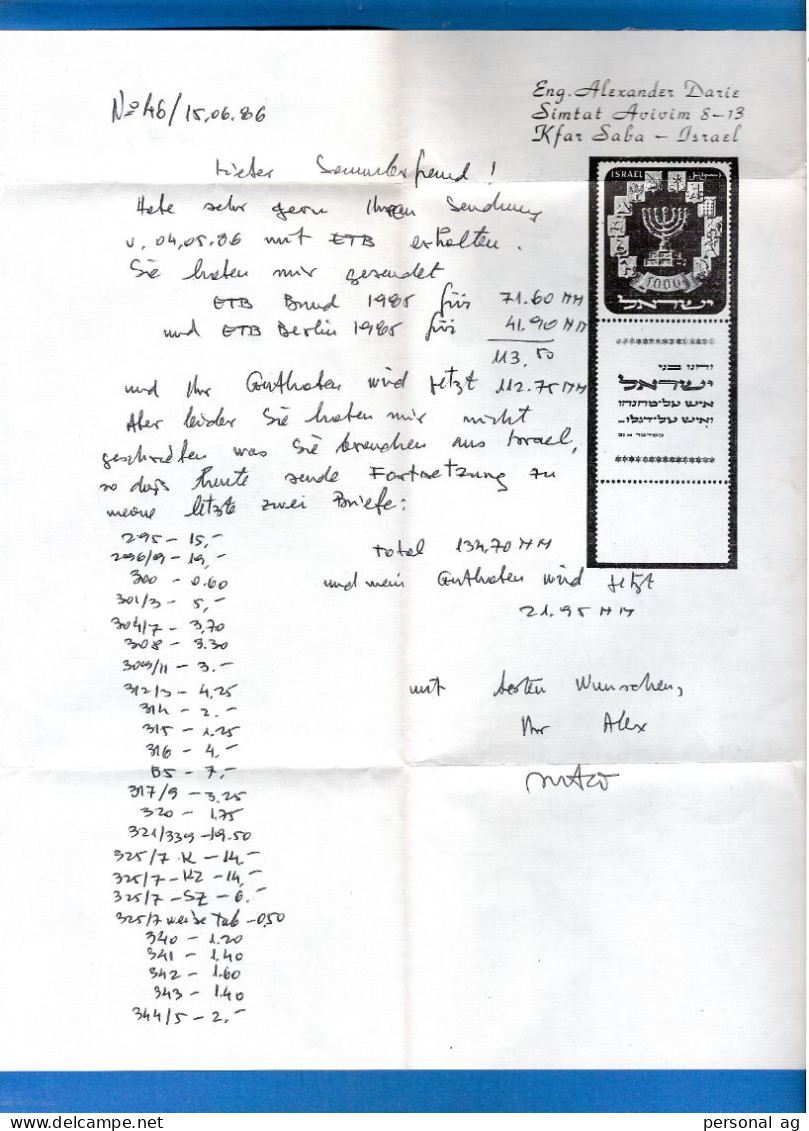 Eng. Alexander Darie
Simtat Avivim 8-13
Kfar Saba - Israel
No 46/15.06.86
Lieber Sammlerfreund!
Habe sehr gern Ihren Sendung
v. 04.05.86 mit ETB erhalten.
Sie haben mir gesendet
ETB Bund 1985 für 71.60 MM
und ETB Berlin 1985 für 41.90 MM
113.50
und Ihr Guthaben wird jetzt 112.75 MM
Aber leider Sie haben mir nicht
geschrieben was Sie brauchen aus Israel,
so daß heute sende Fortsetzung zu
meine letzte zwei Briefe:
295 - 15,-
296/9 - 19,-
300 - 0.60
301/3 - 5,-
304/7 - 3.70
308 - 3.30
309/11 - 3.-
312/3 - 4.25
314 - 2.-
315 - 1.25
316 - 4.-
B5 - 7.-
317/9 - 3.25
320 - 1.75
321/339 - 19.50
325/7 K - 14,-
325/7 - KZ - 14,-
325/7 - SZ - 6.-
325/7 weise Tab - 0.50
340 - 1.20
341 - 1.40
342 - 1.60
343 - 1.40
344/5 - 2.-
total 134.70 MM
und mein Guthaben wird jetzt
21.95 MM
mit besten Wunschen,
Ihr Alex
ISRAEL
اسرائيل
1000
ישראל
וחנו בני
ישראל
איש על-מחנהו
ואיש על-דגלו...
personal ag